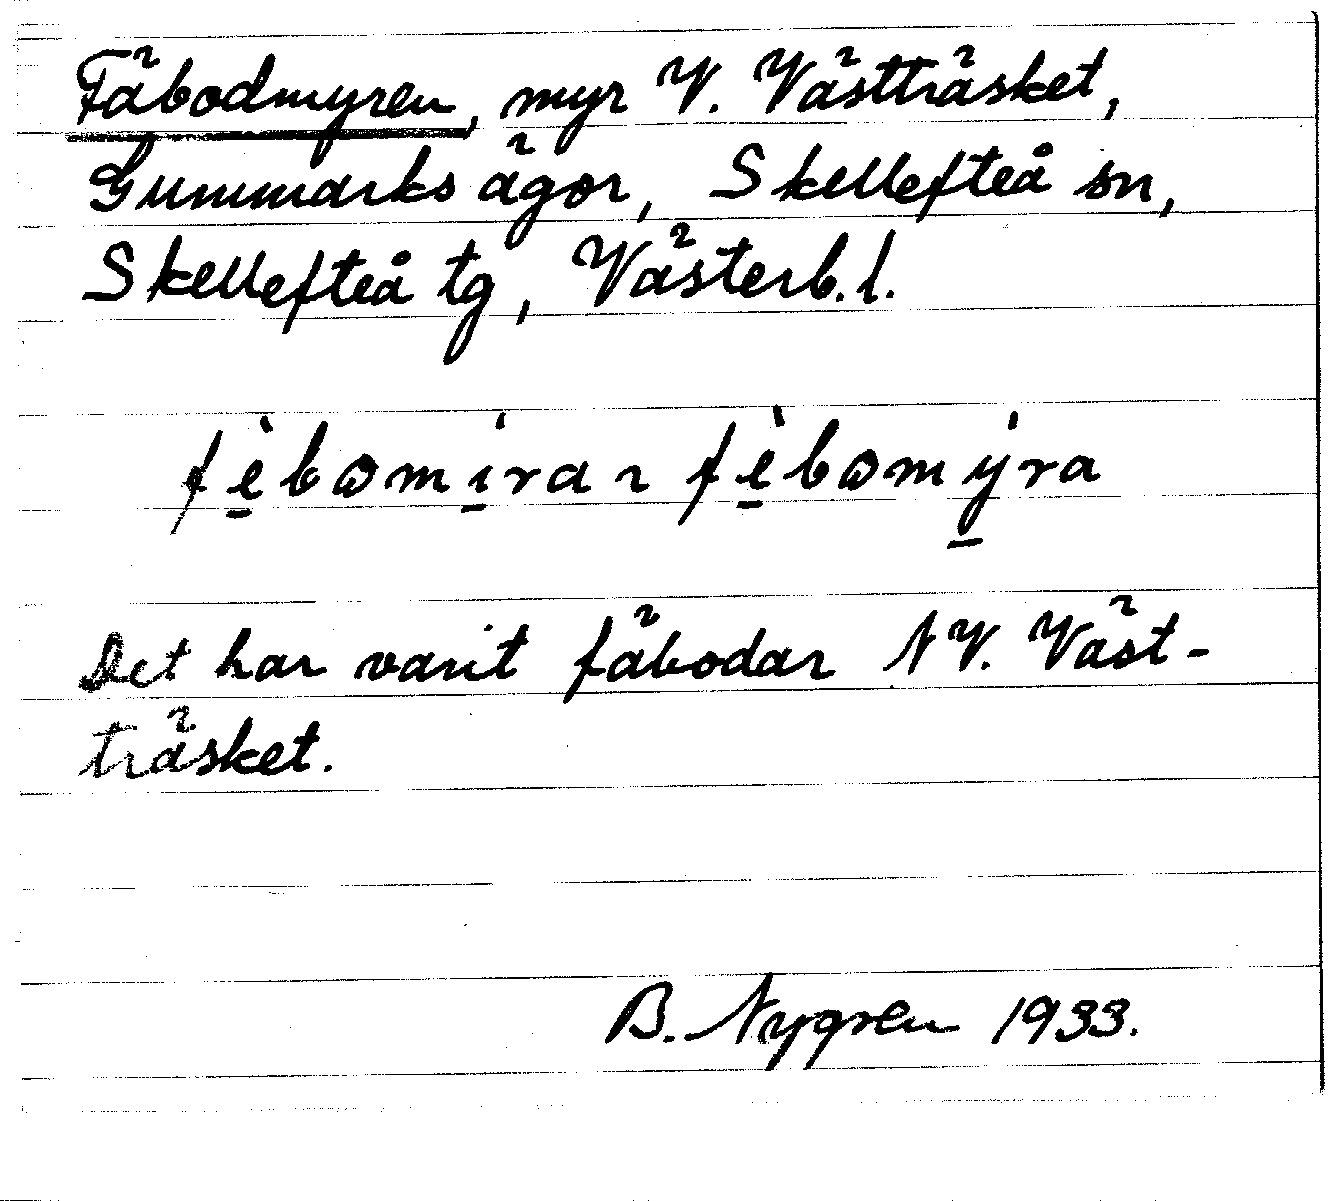 Fäbodmyren, myr V. Västträsket,
Gummarks ägor, Skellefteå sn,
Skellefteå tg, Västerb. l.
fè̱bωmi̱̍ra ~ fè̱bωmy̱̍ra
Det har varit fäbodar NV. Väst-
träsket.
B. Nygren 1933.